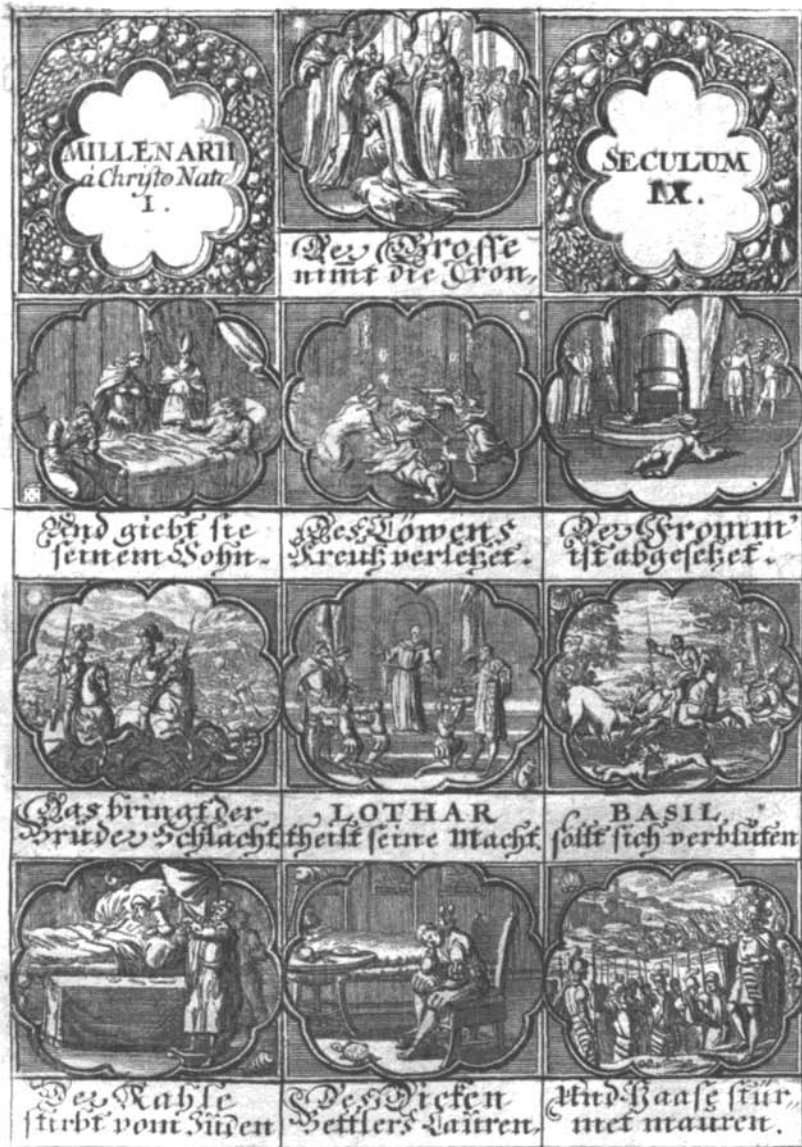 MILLENARII
à Christo Nato
I.
SECULUM
IX.
Der Grosse
nimt die Cron,
Und giebt sie
seinem Sohn.
Des Löwens
Kreutz verletzet.
Der Fromm'
ist abgesetzet.
Das bringt der
Brüder Schlacht
LOTHAR
theilt seine Macht.
BASIL
sollt sich verbluten
Der Kahle
stirbt vom Jüden
Des Dicken
Bettlers Lauren,
Und Haase stür-
met mauren.